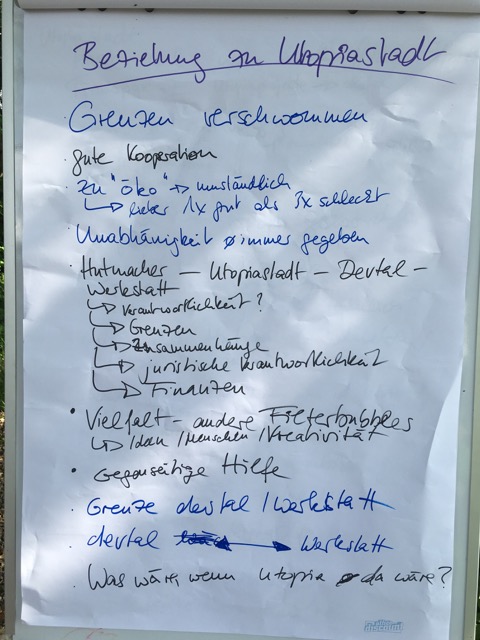 Beziehung zu Utopiastadt
Grenzen verschwommen
· gute Kooperation
· zu "öko" → umständlich
↳ lieber 1x gut als 3x schlecht
· Unabhänigkeit ø immer gegeben
· Hutmacher — Utopiastadt — Devtal —
Werkstatt
↳ Verantwortlichkeit?
↳ Grenzen
↳ Zusammenhänge
↳ juristische Verantwortlichkeit
↳ Finanzen
• Vielfalt – andere Filterbubbles
↳ Ideen / Menschen / Kreativität
• Gegenseitige Hilfe
· Grenze devtal / Werkstatt
· devtal ↔ Werkstatt
· Was wäre wenn Utopia ø da wäre?